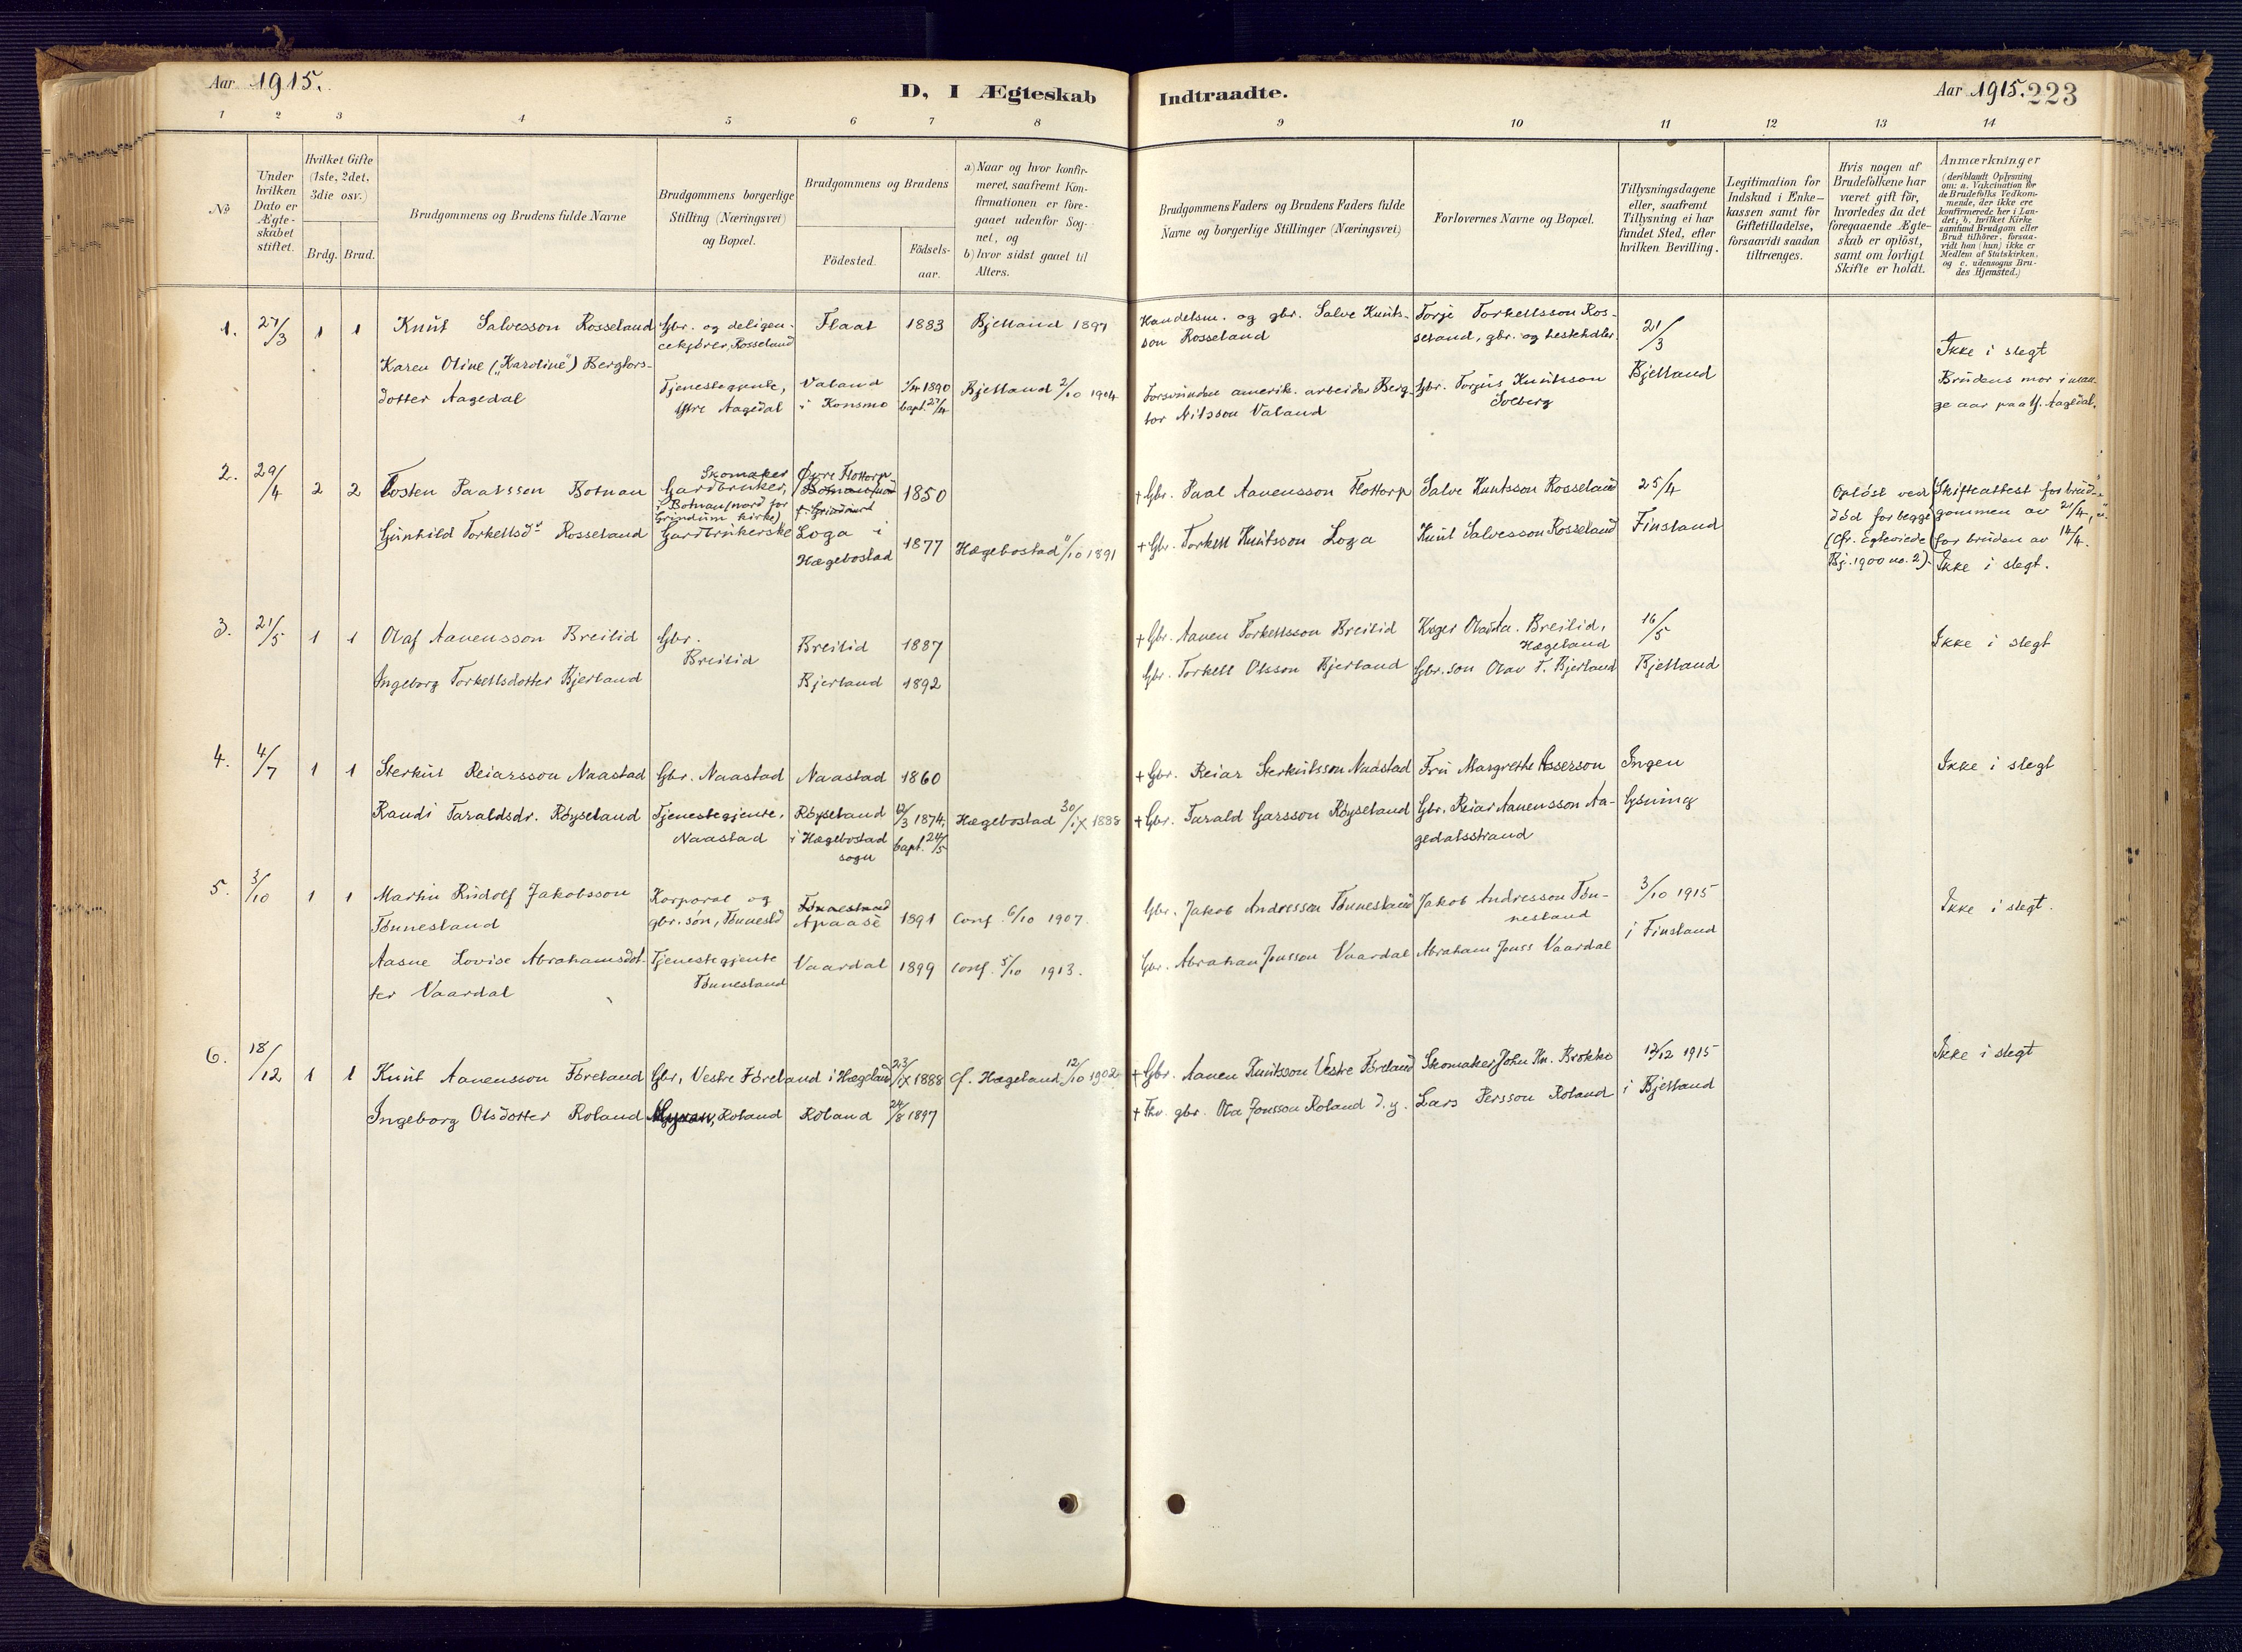 Aar 1915.
D, I Ægteskab Indtraadte.
Aar 1915. 223
1 2 3 4 5 6 7 8 9 10 11 12 13 14
No
Under hvilken Dato er Ægte-skabet stiftet.
Hvilket Gifte (1ste, 2det, 3die osv.)
Brdg. Brud.
Brudgommens og Brudens fulde Navne
Brudgommens borgerlige Stilling (Næringsvei) og Bopæl.
Brudgommens og Brudens
Födested.
Födsels-aar.
a) Naar og hvor konfir-meret, saafremt Kon-firmationen er fore-gaaet udenfor Sog-net, og
b) hvor sidst gaaet til Alters.
Brudgommens Faders og Brudens Faders fulde Navne og borgerlige Stillinger (Næringsvei)
Forlovernes Navne og Bopæl.
Tillysningsdagene eller, saafremt Tillysning ei har fundet Sted, efter hvilken Bevilling.
Legitimation for Indskud i Enke-kassen samt for Giftetilladelse, forsaavidt saadan tiltrænges.
Hvis nogen af Brudefolkene har været gift för, hvorledes da det foregaaende Ægte-skab er oplöst, samt om lovligt Skifte er holdt.
Anmærkninger (deriblandt Oplysning om: a. Vakcination for de Brudefolks Vedkom-mende, der ikke ere konfirmerede her i Lan-det; b. hvilket Kirke samfund Brudgom eller Brud tilhörer, forsaa-vidt han (hun) ikke er Medlem af Statskirken, og c. udensogns Bru-des Hjemsted.)
1. 27/3 1 1 Knut Salvesson Rosseland
Gbr. og deligen-
cekjörer, Rosseland
Flaat 1883 Bjelland 1897
Handelsm. og gbr. Salve Knuts-
son Rosseland
Torje Torkellsson Ros-
seland, gbr. og hestehdler.
21/3
Bjelland
Ikke i slegt
Brudens mor i man-
ge aar paa Y. Aagedal.
Karen Oline ("Karoline") Bergtors-
dotter Aagedal
Tjenestegjente,
Ytre Aagedal
Valand
i Konsmo
1890
bapt. 27/4
Bjelland 2/10 1904
Forsvunden amerik. arbeider Berg-
tor Nilsson Valand
Gbr. Torjus Knutsson
Solberg
2. 29/4 2 2 Tosten Paalsson Botnan
Skomaker
Gardbruker,
Botnan (nord for
Grindum kirke)
Øvre Flottorp
1850
+ Gbr. Paal Aanensson Flottorp
Salve Knutsson Rosseland
25/4
Finsland
Oplöst ved
död for begge
(cfr. Egteviede
Bj. 1900 no. 2).
Skifteattest for brud-
gommen av 21/4,
for bruden av 14/4.
Ikke i slegt.
Gunhild Torkellsdr Rosseland
Gardbrukerske
Loga i
Hægebostad
1877
Hægebostad 11/10 1891
+ Gbr. Torkell Knutsson Loga
Knut Salvesson Rosseland
3. 21/5 1 1 Olaf Aanensson Breilid
Gbr.
Breilid
Breilid 1887
+ Gbr. Aanen Torkellsson Breilid
Breilid,
Hægeland
16/5
Bjelland
Ikke i slegt
Ingeborg Torkellsdotter Bjerland
Bjerland 1892
Gbr. Torkell Olsson Bjerland
Gbr. son Olav T. Bjerland
4. 4/7 1 1 Sterkut Reiarsson Naastad
Gbr. Naastad
Naastad 1860
+ Gbr. Reiar Sterkutsson Naastad
Fru Margrethe Asserson
Ingen
lysning
Ikke i slegt
Randi Taraldsdr. Röyseland
Tjenestegjente,
Naastad
Röyseland
i Hægebostad
sogn
12/3 1874,
bapt. 24/5
Hægebostad 30/IX 1888
+ Gbr. Tarald Garsson Röyseland
Gbr. Reiar Aanensson Aa-
gedalsstrand
5. 3/10 1 1 Martin Rudolf Jakobsson
Tönnesland
Korporal og
gbr. sön, Tönnesld
Tönnesland
Apaase
1891 Conf. 6/10 1907.
Gbr. Jakob Andresson Tönnesland
Jakob Andresson Tön-
nesland
3/10 1915
i Finsland
Ikke i slegt.
Aasne Lovise Abrahamsdot-
ter Vaardal
Tjenestegjente
Tönnesland
Vaardal 1899 Conf. 5/10 1913.
Gbr. Abraham Jonsson Vaardal
Abraham Jonss Vaardal
6. 18/12 1 1 Knut Aanensson Föreland
Gbr, Vestre Föreland i Hægeland
23/IX 1888
Cf. Hægeland 12/10 1902
+ Gbr. Aanen Knutsson Vestre Föreland
Skomaker John Kn. Brokke
12/12 1915
i Bjelland
Ikke i slegt
Ingeborg Olsdotter Roland
Roland
Roland
24/8 1897
+ Fhv. gbr. Ola Jonsson Roland d. y.
Lars Persson Roland